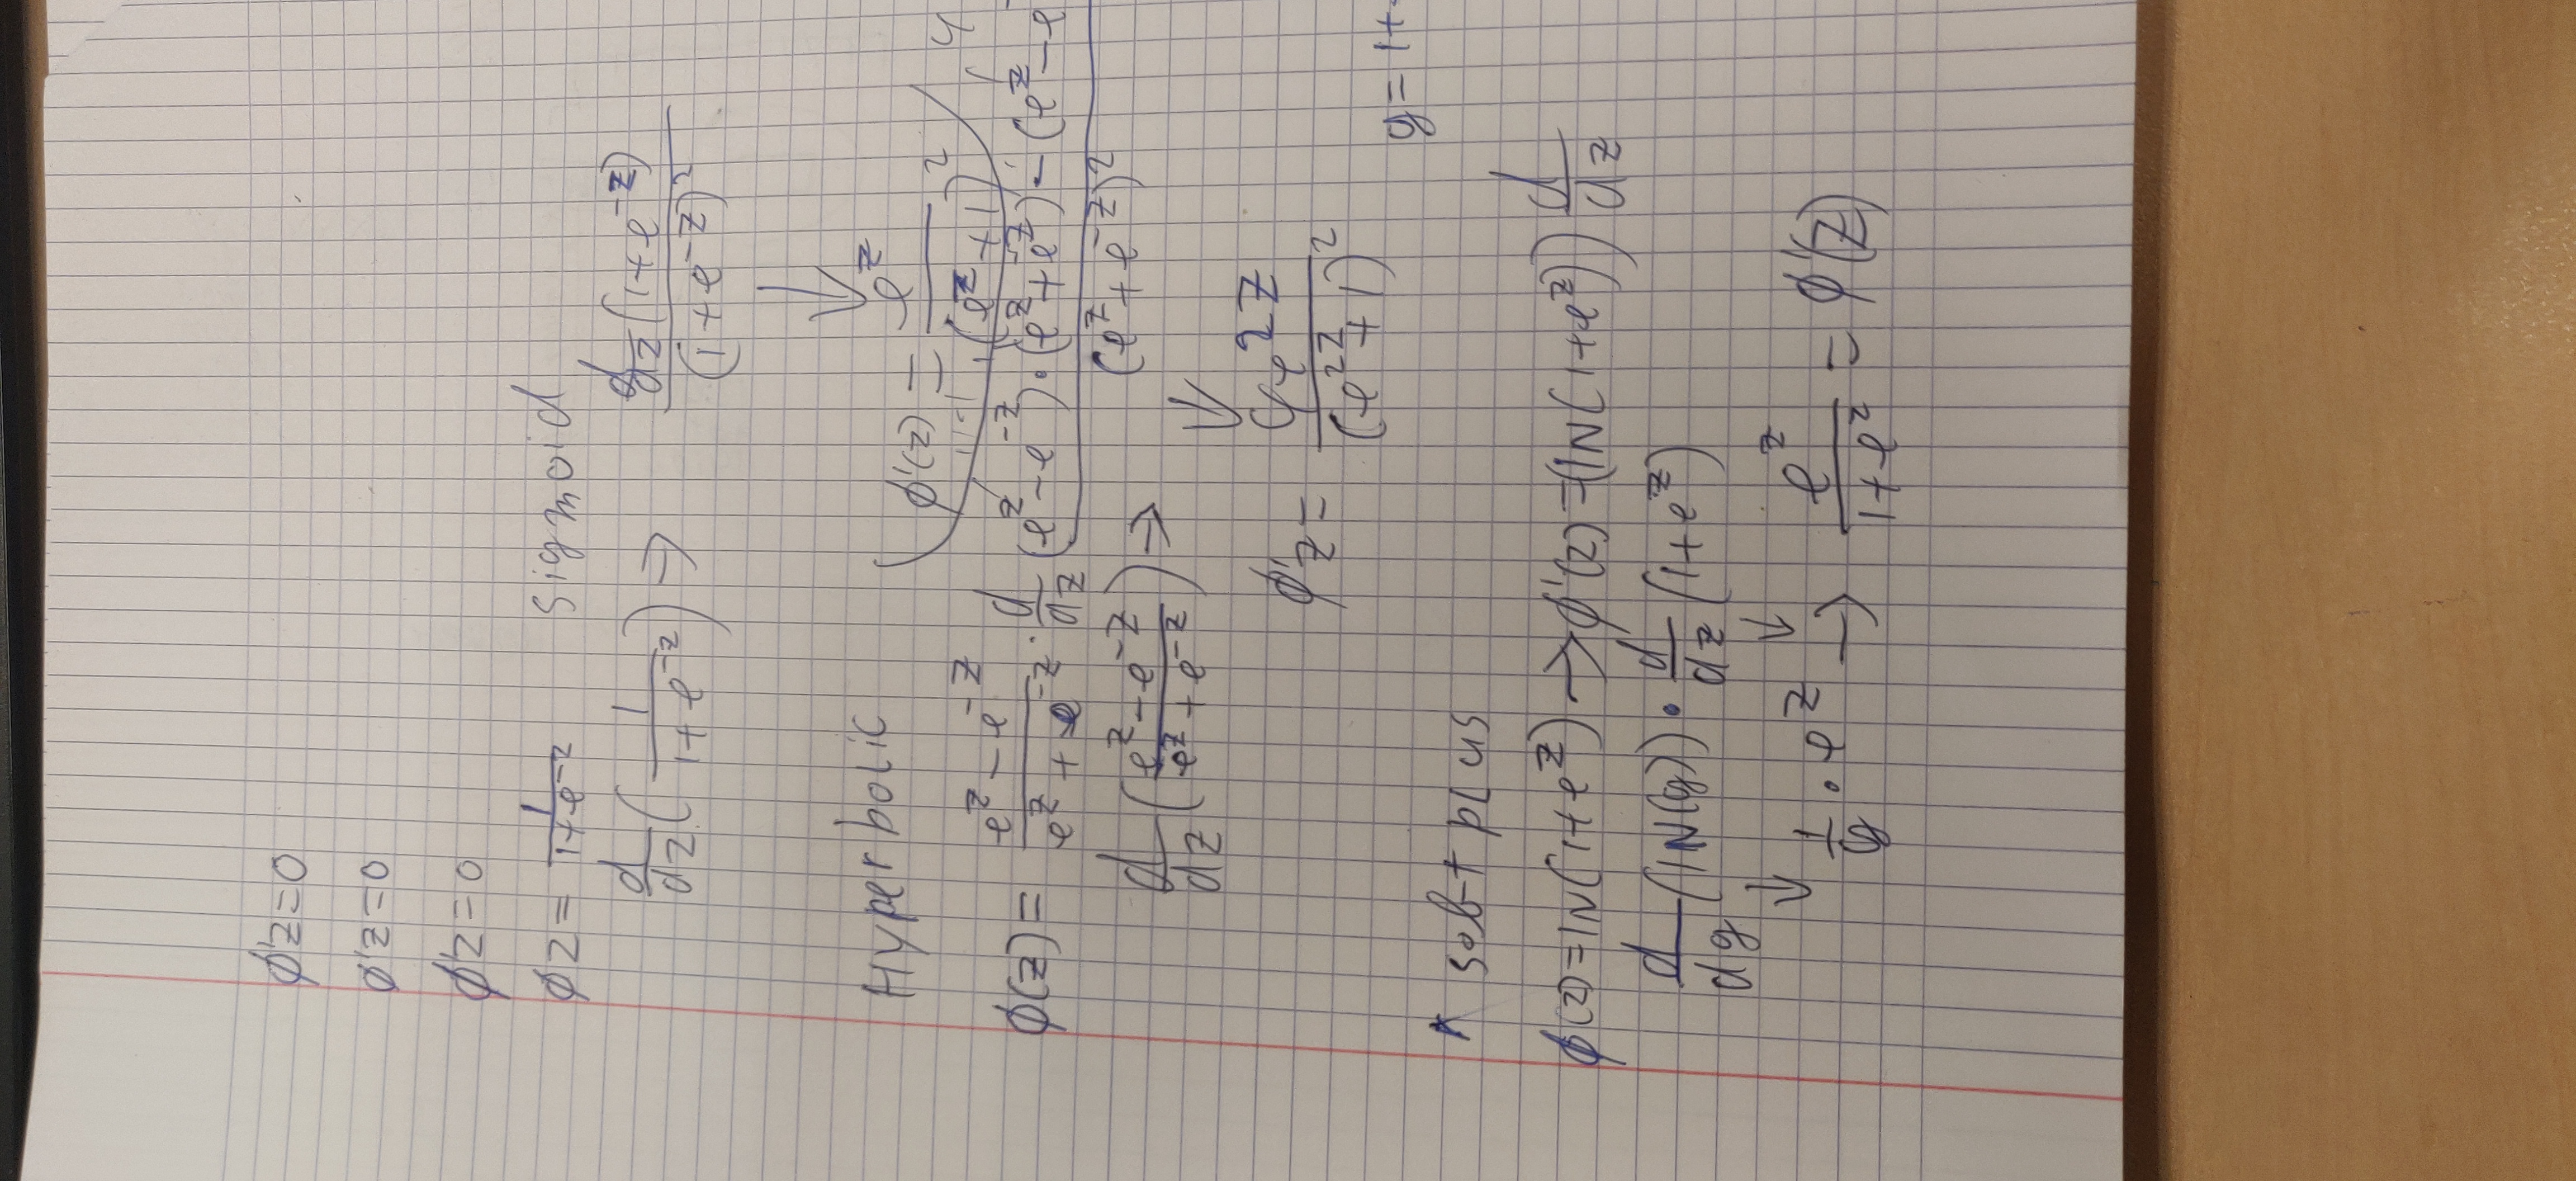 ϕ'z=0
ϕ'z=0
ϕ'z=0
ϕz= 1/(1+e^-z) sigmoid
d/dz (1/(1+e^-z)) → d/dz(1+e^-z)/(1+e^-z)^2
↓
Hyperbolic
ϕ'(z) = e^z/(e^z+1)^2
ϕ(z)= (e^z-e^-z)/(e^z+e^-z) · d/dz (e^z-e^-z)·(e^z+e^-z)-(e^z-e
(e^z+e^-z)^2
d/dz ((e^z-e^-z)/(e^z+e^-z)) →
↓
ϕ'z= 4e^2z/(e^2z+1)^2
g=1+
softplus
ϕ(z)=lN(1+e^z) → ϕ'(z)=(lN(1+e^z)) d/dz
d/dg (lN(g)) · d/dz (1+e^z)
↓ ↓
1/g · e^z → e^z/(1+e^z) = ϕ'(z)